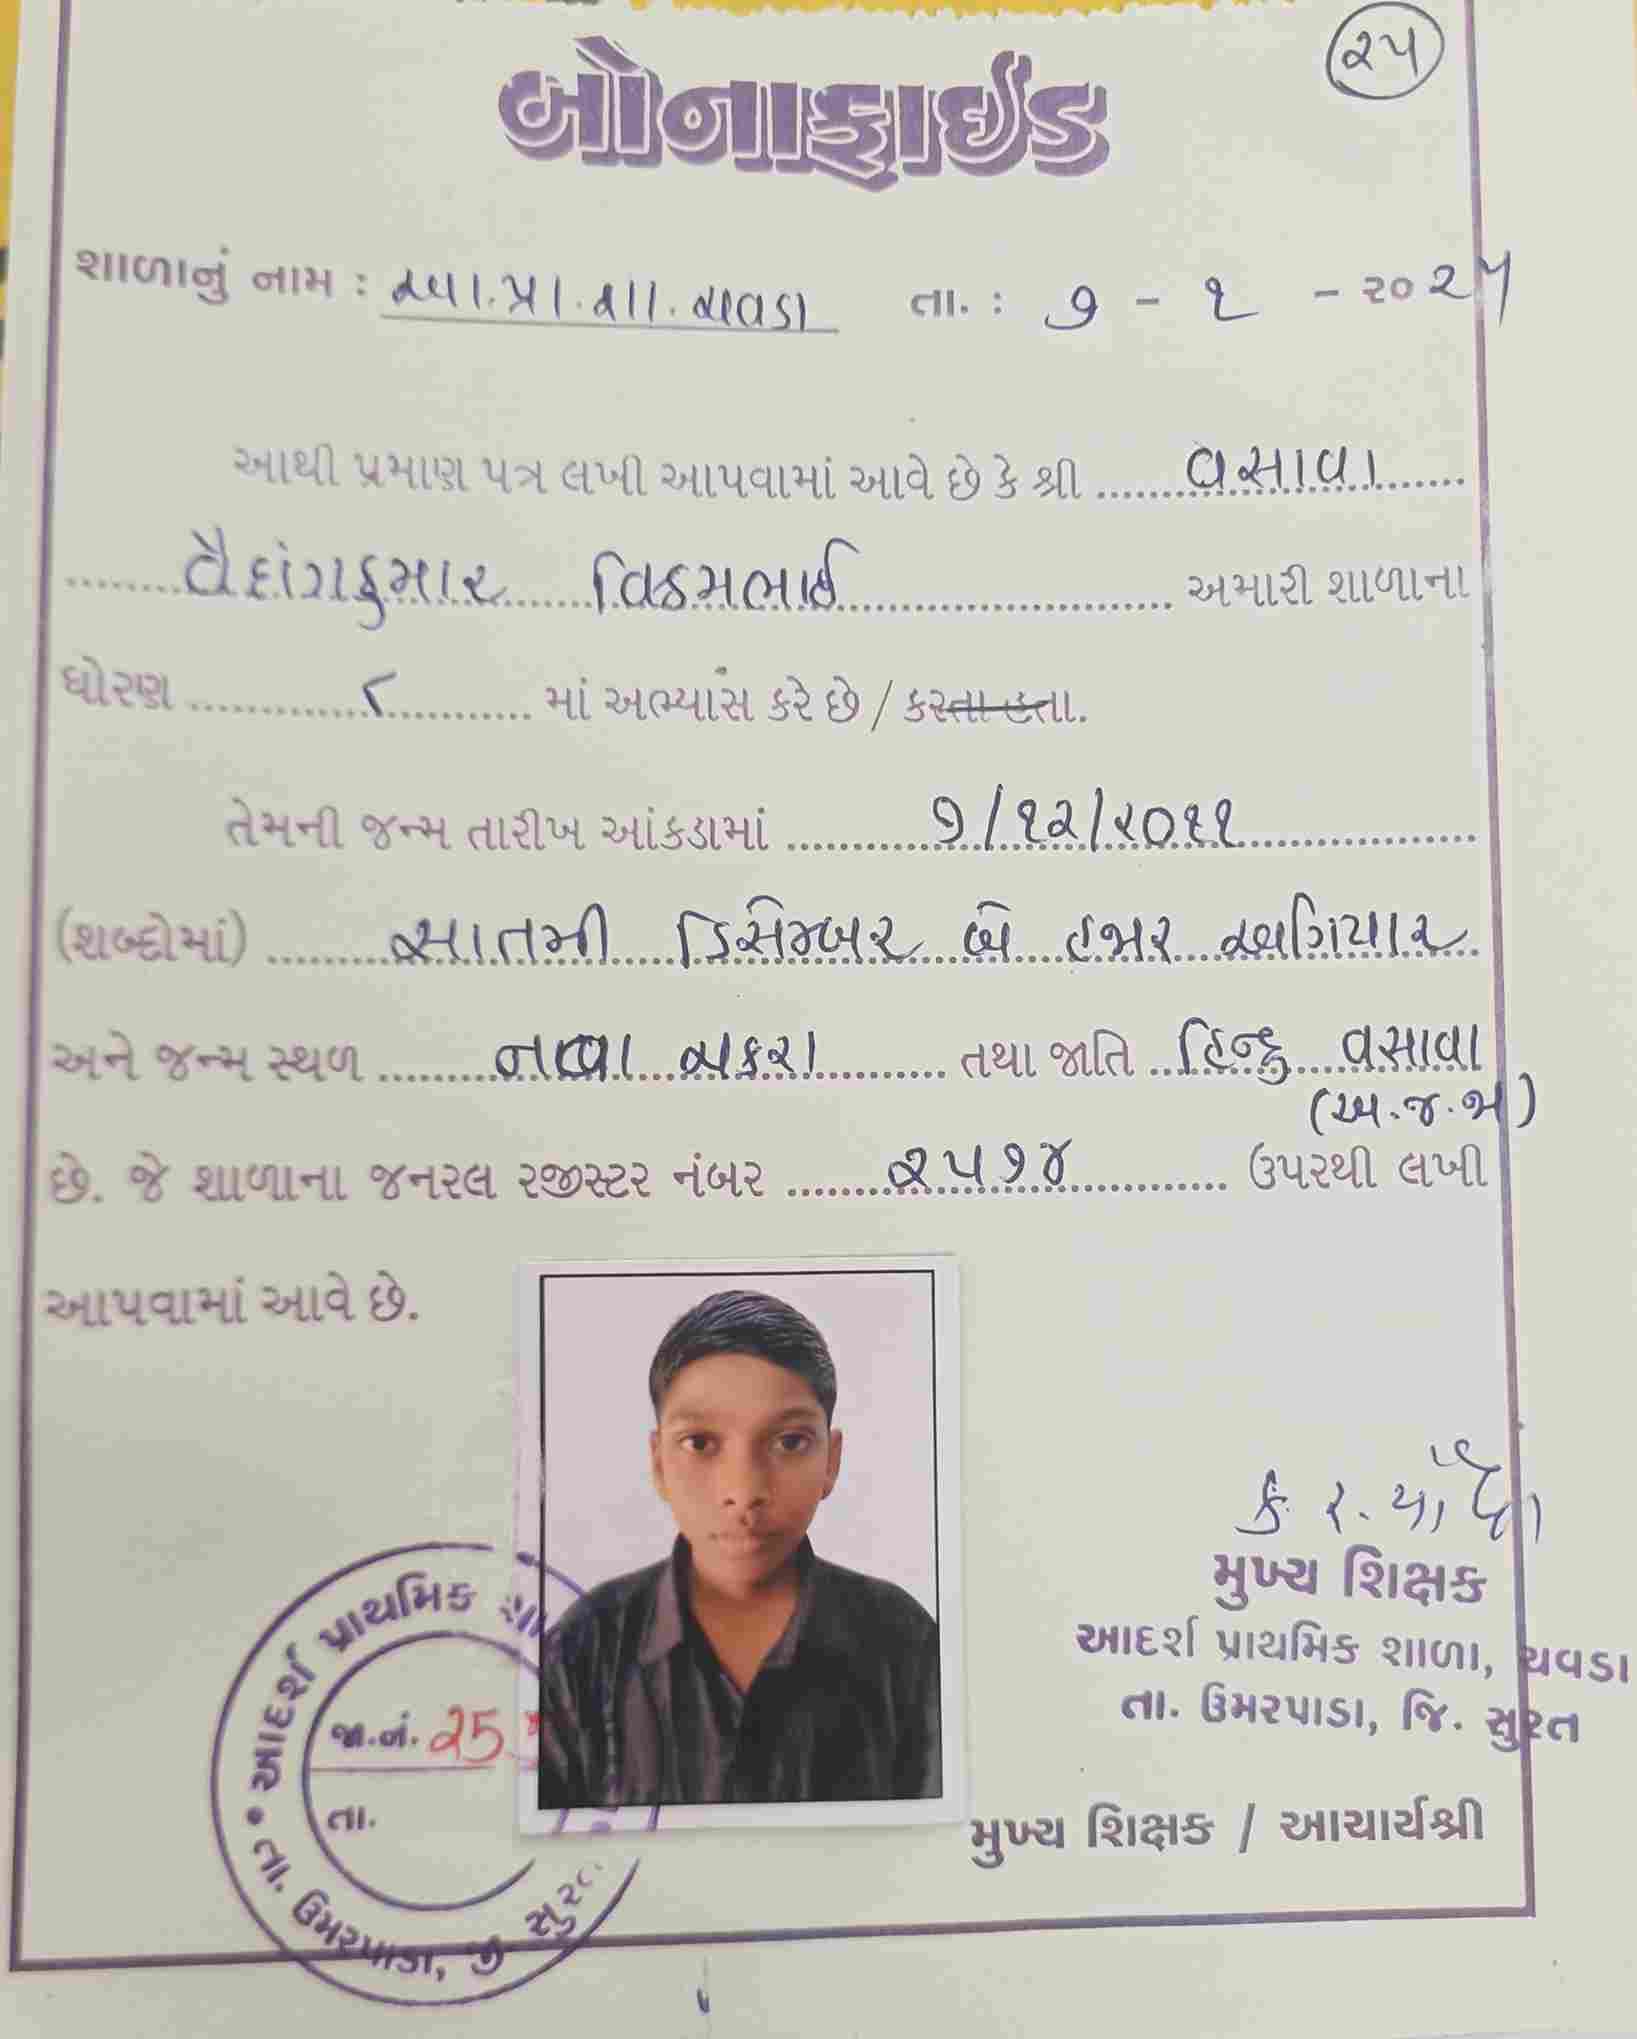 ૨૫
બોનાફાઈડ
શાળાનું નામ : આ.પ્રા.શા. ચવડા તા. : ૭ - ૧ - ૨૦૨૫
આથી પ્રમાણ પત્ર લખી આપવામાં આવે છે કે શ્રી વસાવા
વૈદાંગકુમાર વિક્રમભાઈ અમારી શાળાના
ધોરણ ૮ માં અભ્યાસ કરે છે / કરતા હતા.
તેમની જન્મ તારીખ આંકડામાં ૭/૧૨/૨૦૧૧
(શબ્દોમાં) સાતમી ડિસેમ્બર બે હજાર અગિયાર
અને જન્મ સ્થળ નવા ચકરા તથા જાતિ હિન્દુ વસાવા
(અ.જ.જા)
છે. જે શાળાના જનરલ રજીસ્ટર નંબર ૨૫૭૪ ઉપરથી લખી
આપવામાં આવે છે.
મુખ્ય શિક્ષક
આદર્શ પ્રાથમિક શાળા, ચવડા
તા. ઉમરપાડા, જિ. સુરત
મુખ્ય શિક્ષક / આચાર્યશ્રી
આદર્શ પ્રાથમિક
જા.નં. 25
તા.
તા. ઉમરપાડા, જી સુરત